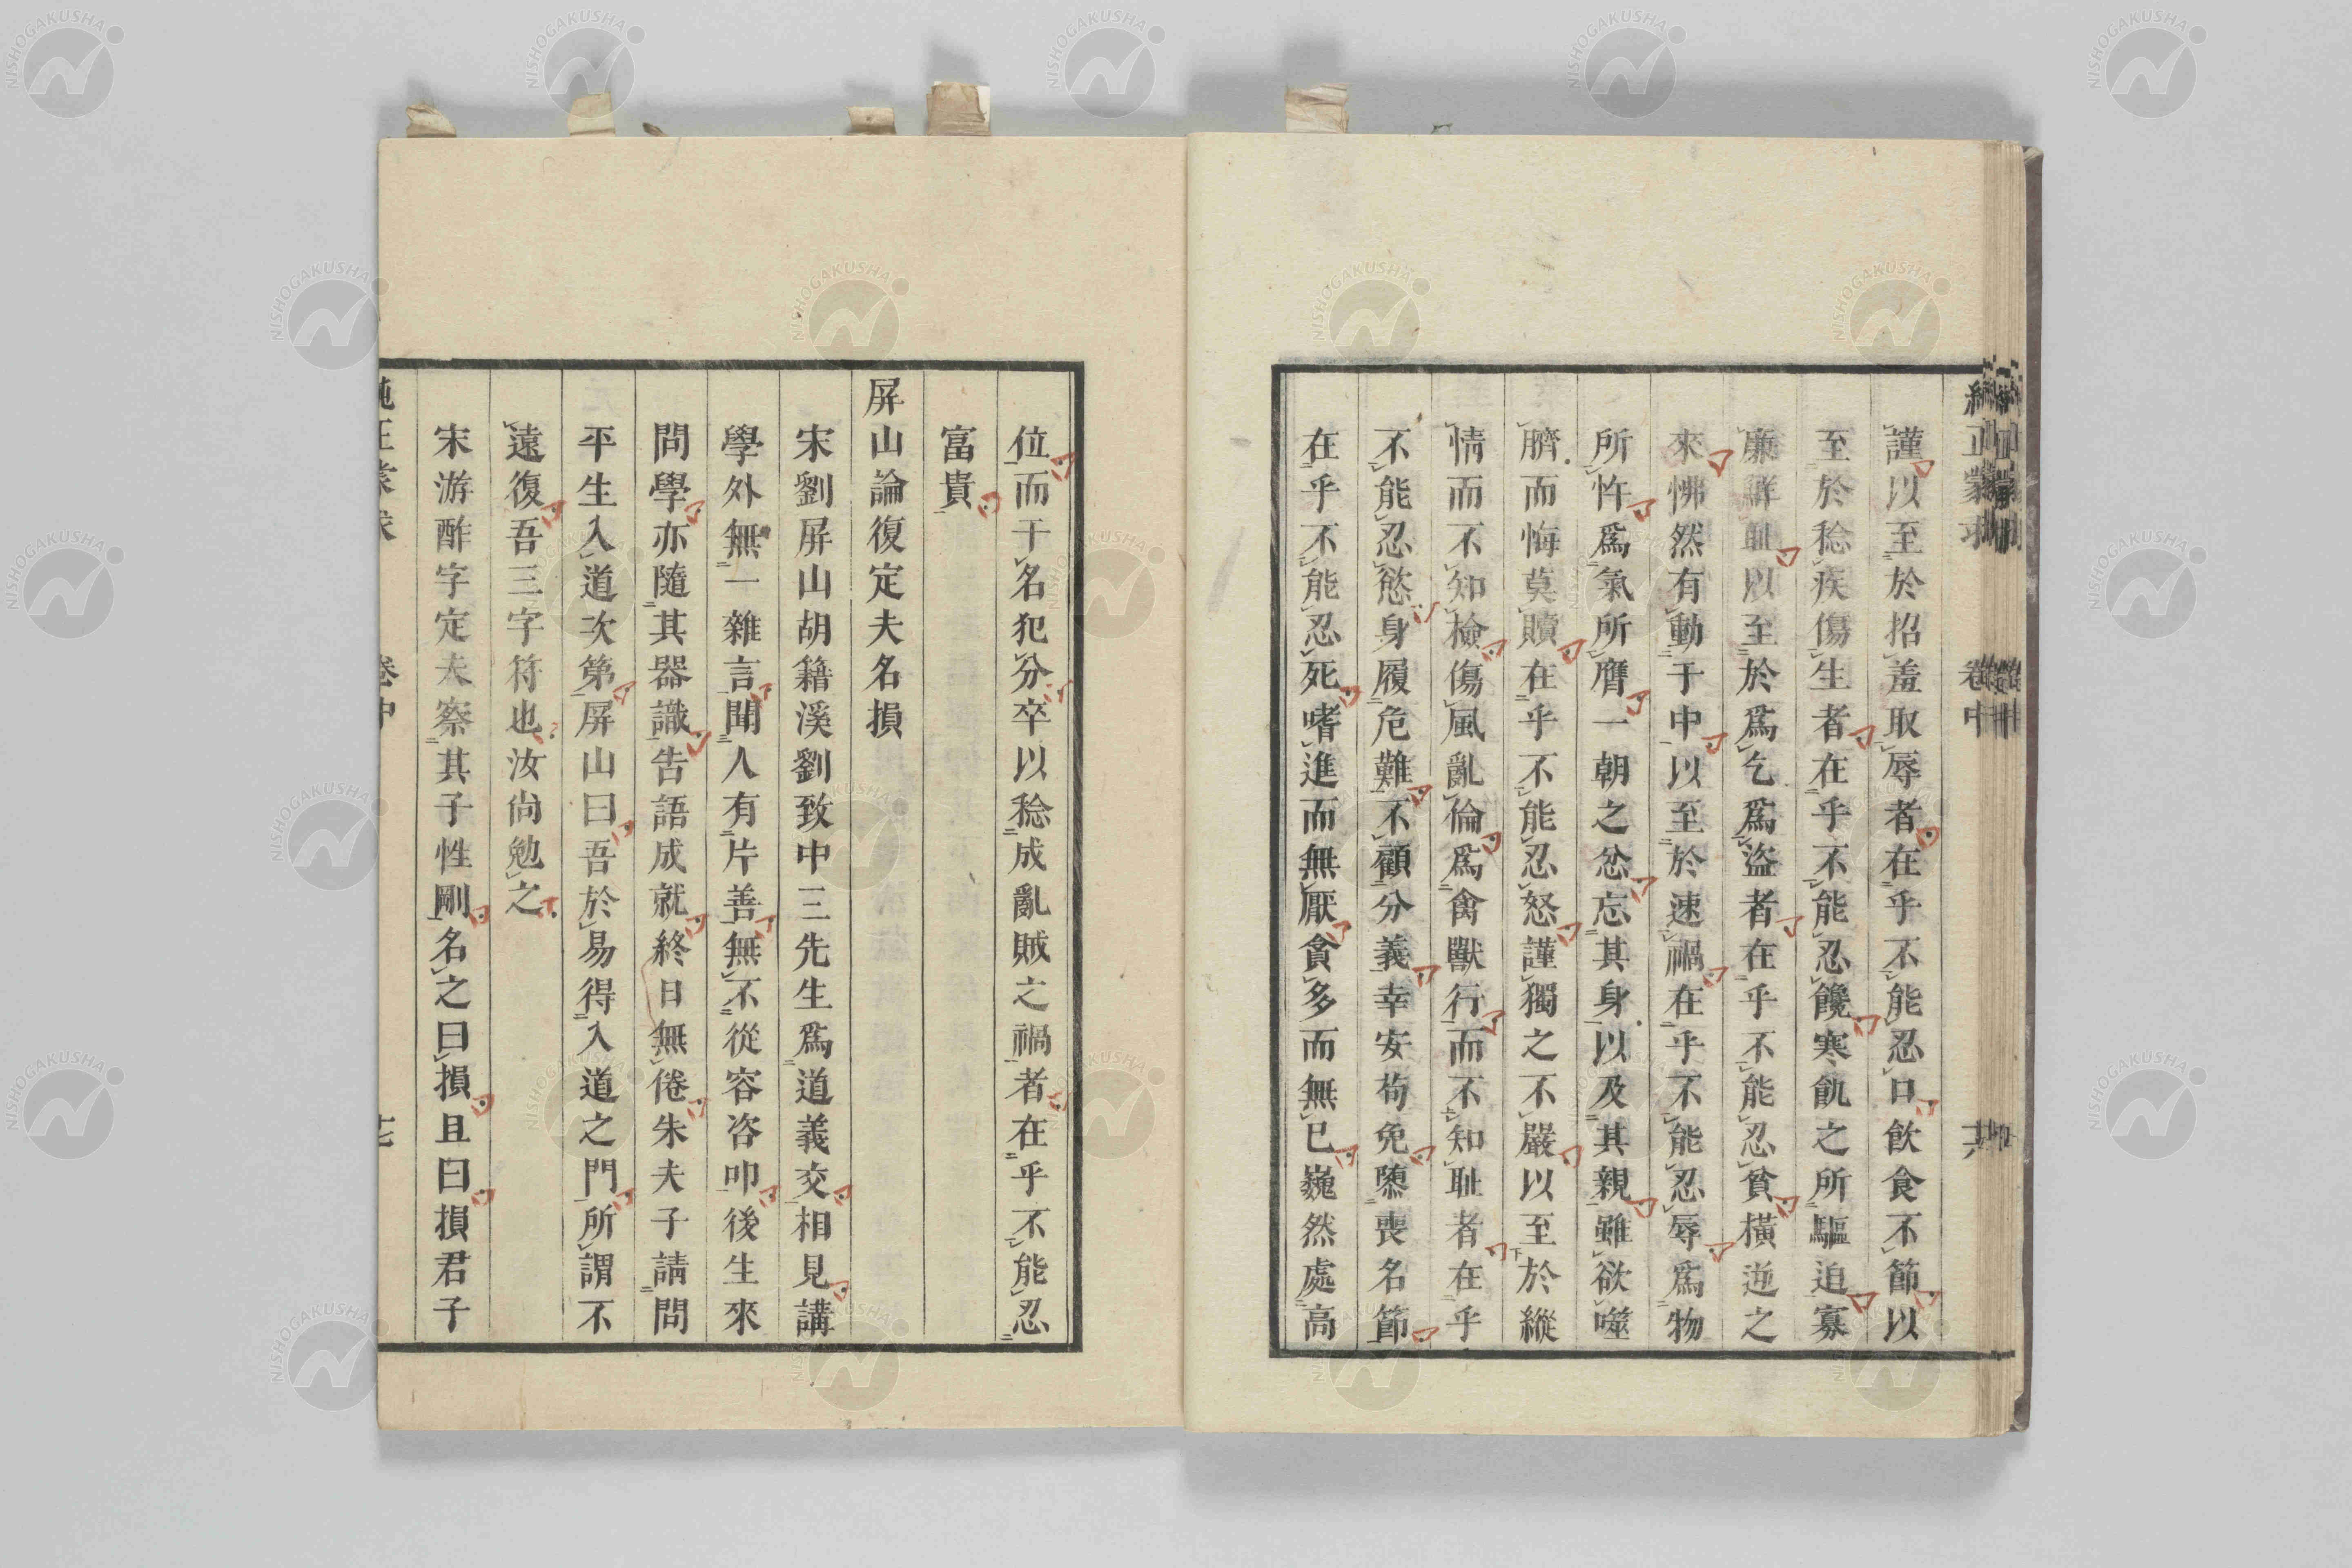 純正蒙求 卷中 十六
謹以至於招羞取辱者在乎不能忍口飲食不節以
至於稔疾傷生者在乎不能忍饞寒飢之所驅迫寡
廉鮮耻以至於爲乞爲盜者在乎不能忍貧橫逆之
來怫然有動于中以至於速禍在乎不能忍辱爲物
所忤爲氣所膺一朝之忿忘其身以及其親雖欲噬
臍而悔莫贖在乎不能忍怒謹獨之不嚴以至於縱
情而不知檢傷風亂倫爲禽獸行而不知耻者在乎
不能忍慾身履危難不顧分義幸安苟免隳喪名節
在乎不能忍死嗜進而無厭貪多而無已巍然處高
位而干名犯分卒以稔成亂賊之禍者在乎不能忍
富貴
屏山論復定夫名損
宋劉屏山胡籍溪劉致中三先生爲道義交相見講
學外無一雜言聞人有片善無不從容咨叩後生來
問學亦隨其器識告語成就終日無倦朱夫子請問
平生入道次第屏山曰吾於易得入道之門所謂不
遠復吾三字符也汝尙勉之
宋游酢字定夫察其子性剛名之曰損且曰損君子
純正蒙求 卷中 十七
NISHOGAKUSHA